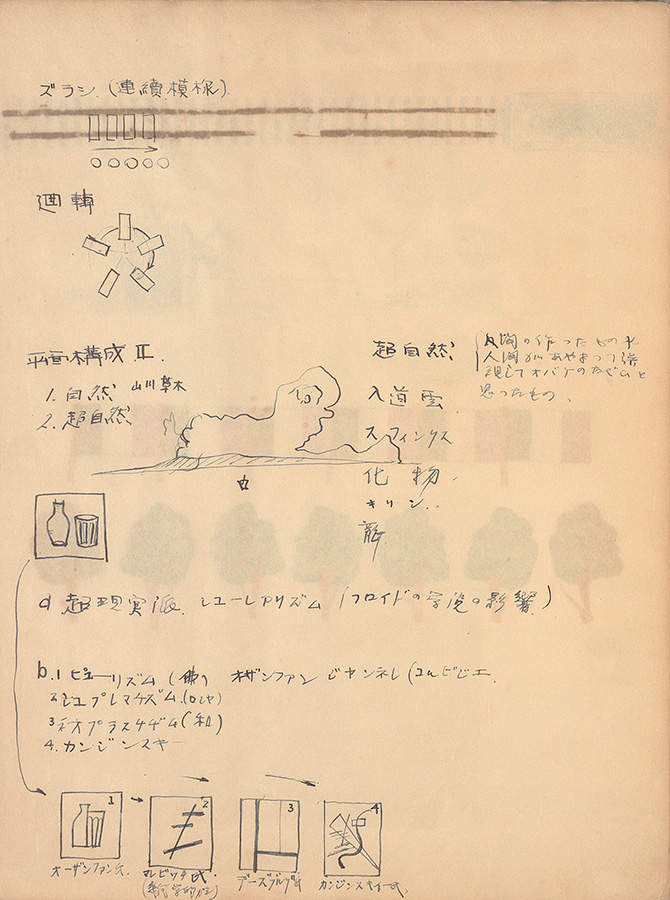 ズラシ.(連續模様).
廻轉
平面構成 II.
1. 自然 山川草木
2. 超自然
超自然
人間の作ったもの
人間があやまって
思ったもの、
入道雲
スフィンクス
化物.
キリン..
龍
a 超現実派. シューレアリズム (フロイドの学説の影響)
b.1 ピューリズム (佛) オザンファン ジャンネレ (コルビジエ.
2 シュプレマチズム.(ロシヤ)
3 ネオプラスチチズム (和)
4. カンジンスキー
1
2
3
4
オーザンファン氏.
マレビッチ氏.
デースブルグ氏
カンジンスキー氏.